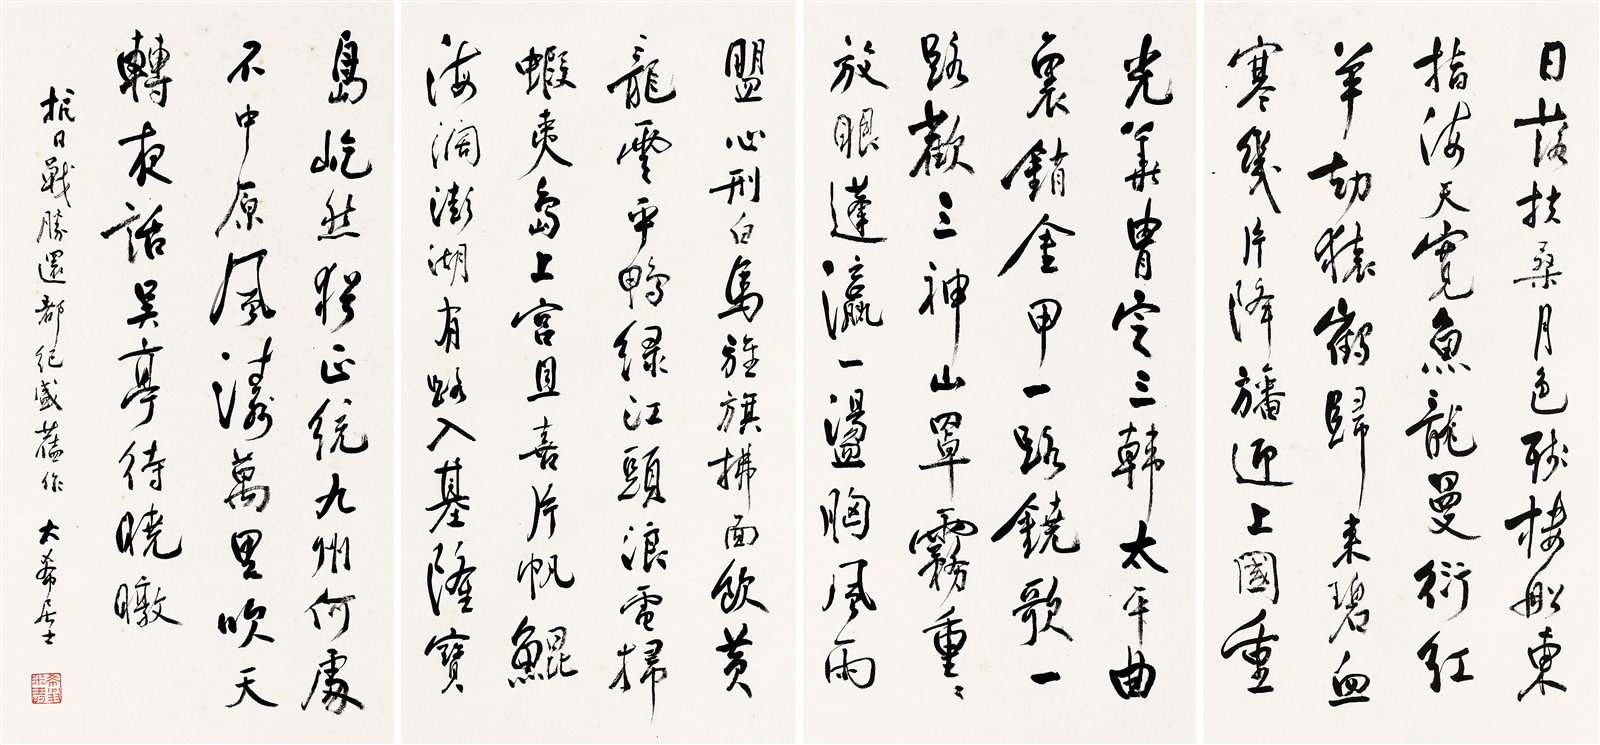 日落扶桑月色殘樓船東
指海天寬魚龍曼衍紅
羊劫猿鶴歸來碧血
寒幾片降旛迎上國重
光華胄定三韓太平曲
裏銷金甲一路鐃歌一
路歡三神山罩霧重重
放眼蓬瀛一盪胸風雨
盟心刑白馬旌旗拂面飲黃
龍雲平鴨綠江頭浪電掃
蝦夷島上宮且喜片帆鯤
海濶澎湖有路入基隆寶
島屹然猶正統九州何處
不中原風濤萬里吹天
轉夜話吳亭待曉暾
抗日戰勝還都紀盛舊作
大希居士